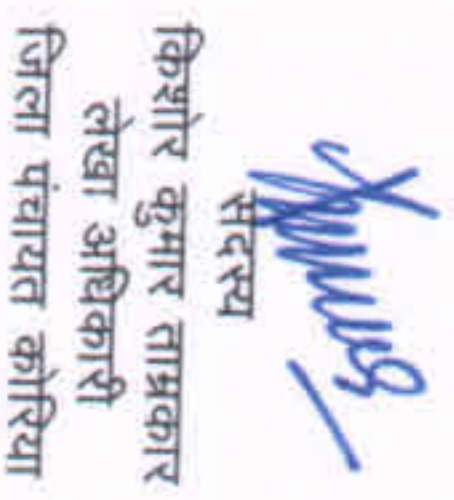 सदस्य
किशोर कुमार ताम्रकार
लेखा अधिकारी
जिला पंचायत कोरिया